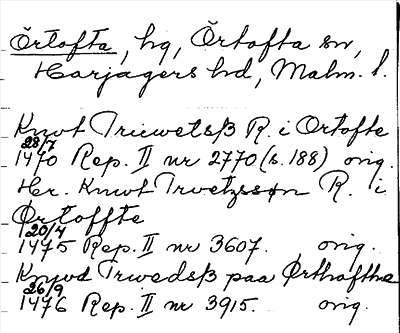 Örtofta, hg, Örtofta sn,
Harjagers hd, Malm. l.
Knwt Tricwetsß R. i Ortofte
28/7
1470 Rep. II nr 2770 (s. 188) orig.
Hr. Knwt Trvetzssøn R. i
Ørtoffte
20/4
1475 Rep. II nr 3607. orig.
Knwd Trwedsß paa Ørthofthe
26/9
1476 Rep. II nr 3915. orig.